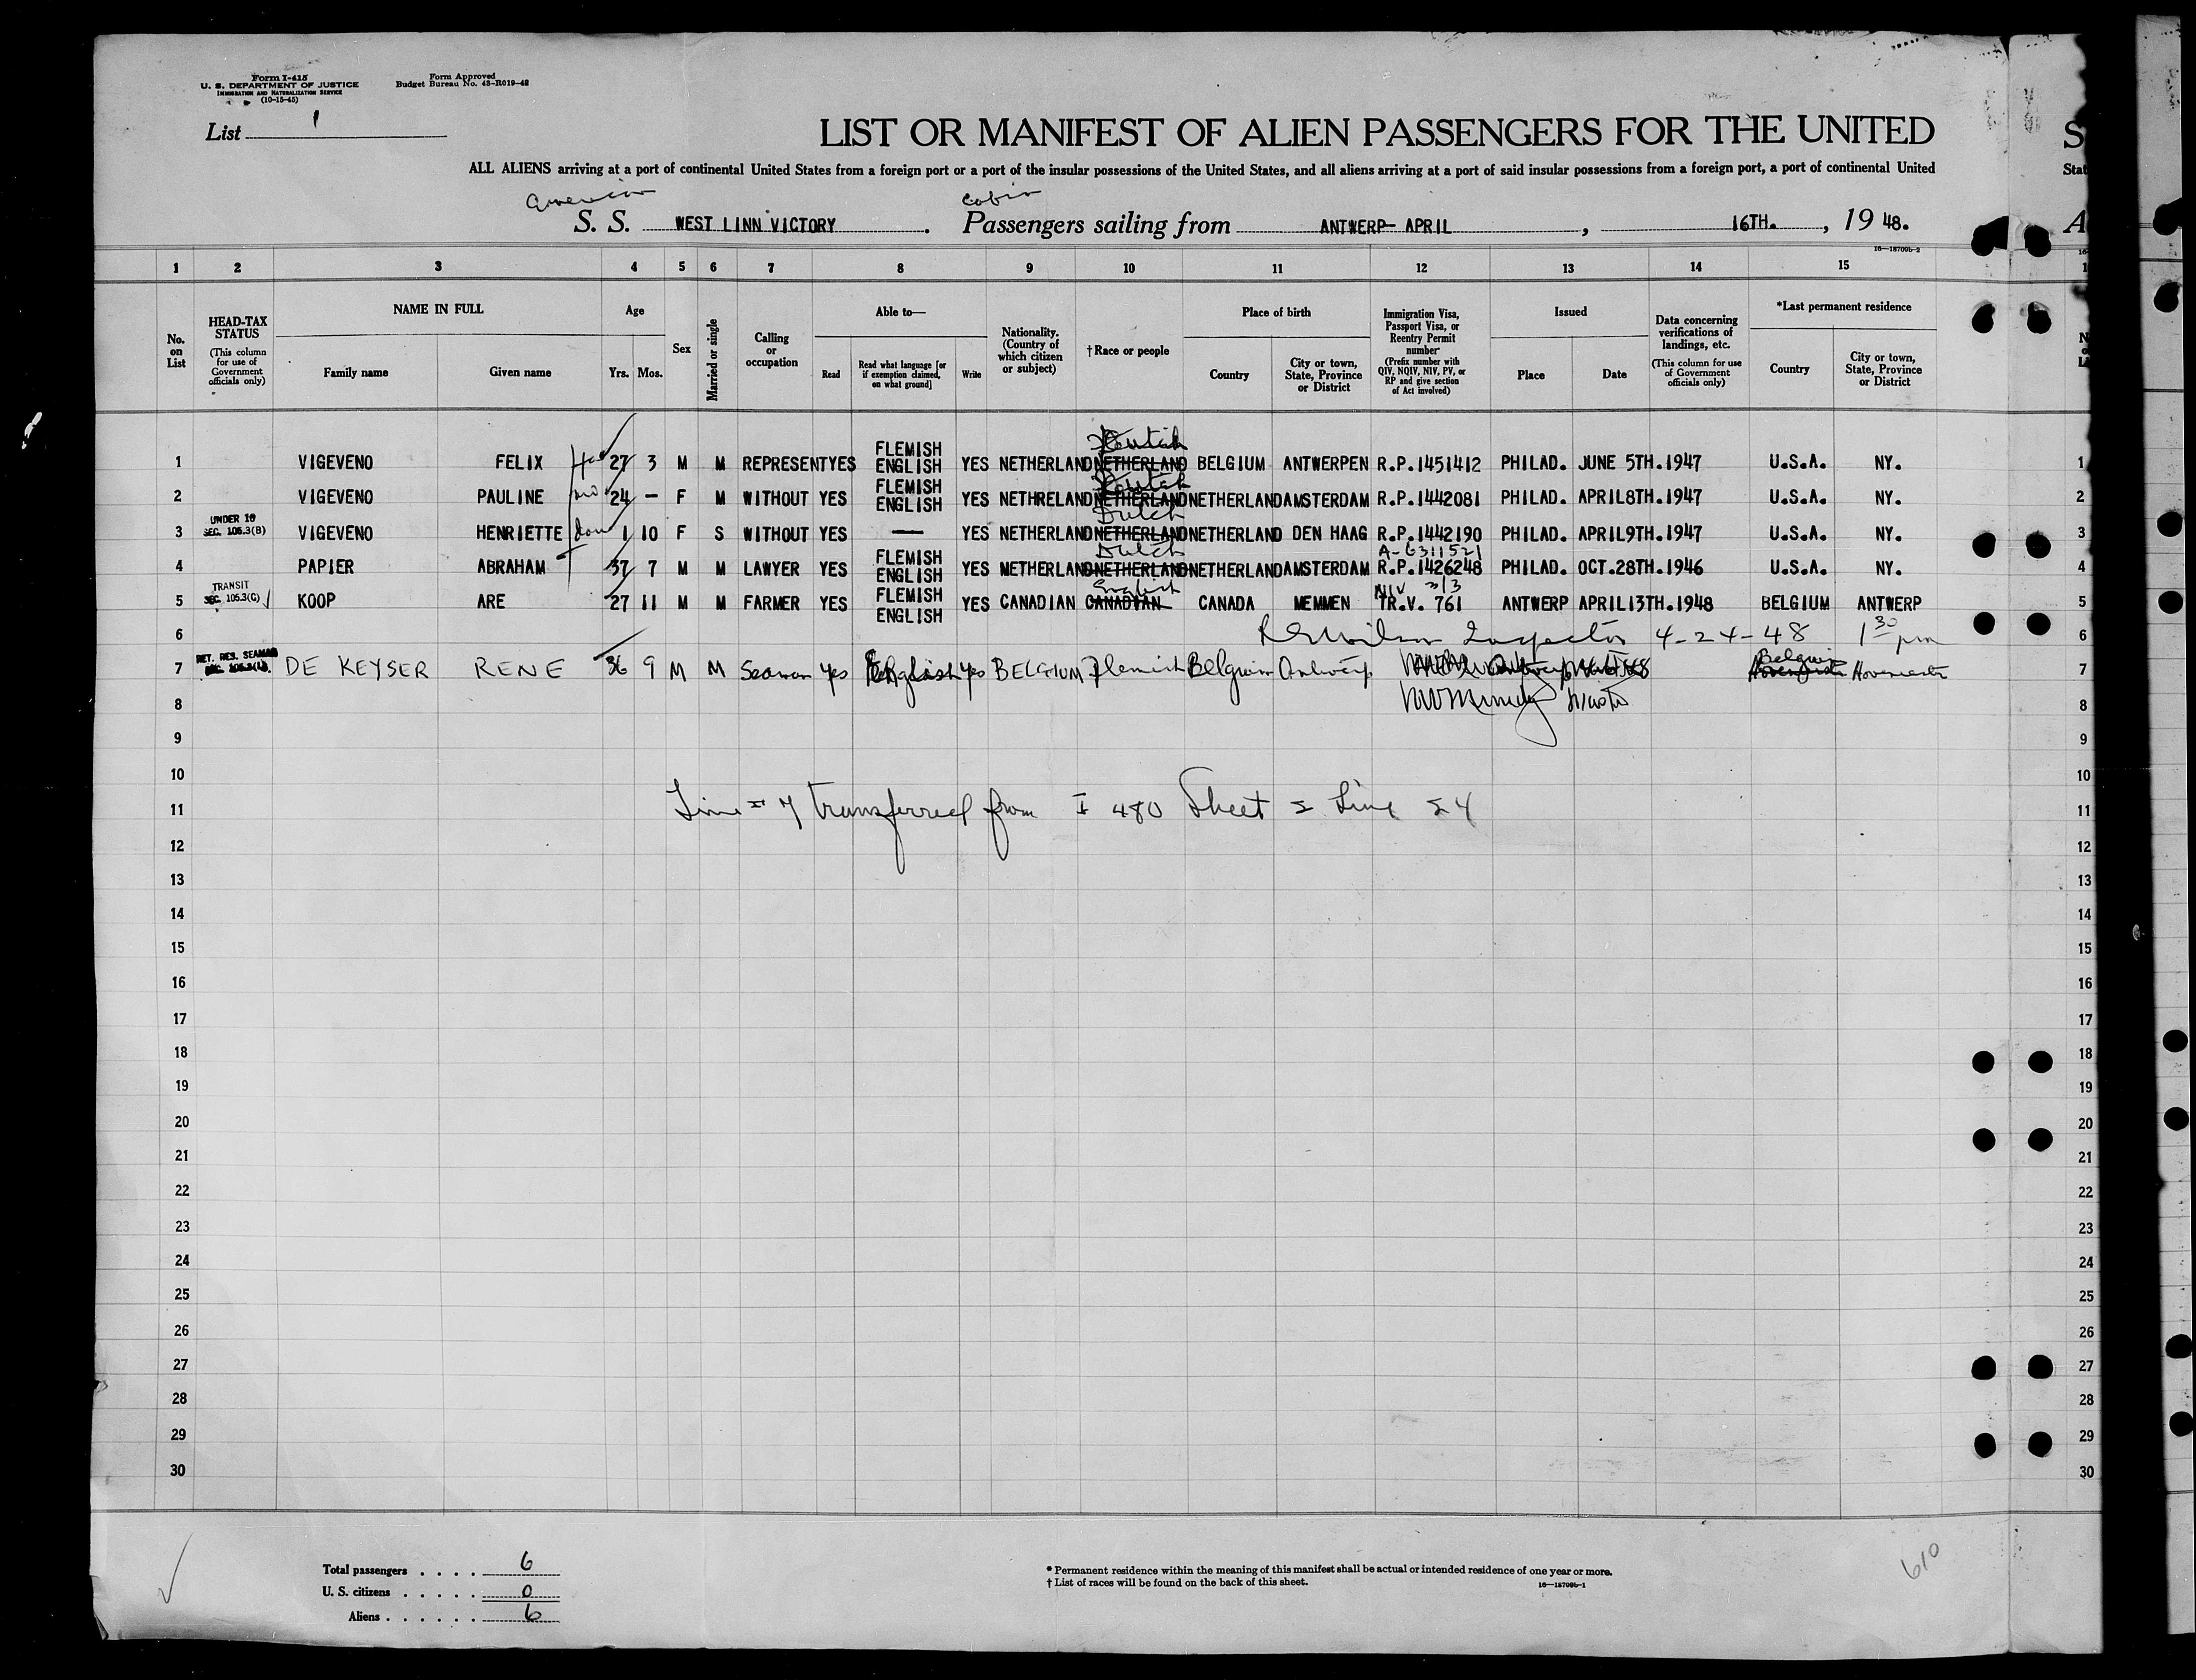 Form I-415
U. S. DEPARTMENT OF JUSTICE
IMMIGRATION AND NATURALIZATION SERVICE
(10-15-45)
Form Approved
Budget Bureau No. 43-R019-42
List 1
LIST OR MANIFEST OF ALIEN PASSENGERS FOR THE UNITED S
ALL ALIENS arriving at a port of continental United States from a foreign port or a port of the insular possessions of the United States, and all aliens arriving at a port of said insular possessions from a foreign port, a port of continental United Stat
American cabin
S. S. WEST LINN VICTORY. Passengers sailing from ANTWERP- APRIL, 16TH., 19 48. A
16—18709b-2
1 2 3 4 5 6 7 8 9 10 11 12 13 14 15
No. on List
HEAD-TAX STATUS
(This column for use of Government officials only)
NAME IN FULL
Family name Given name
Age
Yrs. Mos.
Sex
Married or single
Calling or occupation
Able to—
Read Read what language [or if exemption claimed, on what ground] Write
Nationality. (Country of which citizen or subject)
†Race or people
Place of birth
Country City or town, State, Province or District
Immigration Visa, Passport Visa, or Reentry Permit number
(Prefix number with QIV, NQIV, NIV, PV, or RP and give section of Act involved)
Issued
Place Date
Data concerning verifications of landings, etc.
(This column for use of Government officials only)
*Last permanent residence
Country City or town, State, Province or District
1 VIGEVENO FELIX 27 3 M M REPRESENT YES FLEMISH ENGLISH YES NETHERLAND NETHERLAND Dutch BELGIUM ANTWERPEN R.P.1451412 PHILAD. JUNE 5TH.1947 U.S.A. NY. 1
2 VIGEVENO PAULINE 24 — F M WITHOUT YES FLEMISH ENGLISH YES NETHRELAND NETHERLAND Dutch NETHERLAND AMSTERDAM R.P.1442081 PHILAD. APRIL8TH.1947 U.S.A. NY. 2
3 UNDER 16 SEC. 105.3(B) VIGEVENO HENRIETTE 1 10 F S WITHOUT YES — YES NETHERLAND NETHERLAND Dutch NETHERLAND DEN HAAG R.P.1442190 PHILAD. APRIL9TH.1947 U.S.A. NY. 3
4 PAPIER ABRAHAM 37 7 M M LAWYER YES FLEMISH ENGLISH YES METHERLAND NETHERLAND Dutch NETHERLAND AMSTERDAM A-6311521 R.P.1426248 PHILAD. OCT.28TH.1946 U.S.A. NY. 4
5 TRANSIT SEC. 105.3(G) KOOP ARE 27 11 M M FARMER YES FLEMISH ENGLISH YES CANADIAN CANADIAN English CANADA MEMMEN NIV 3/3 TR.V. 761 ANTWERP APRIL13TH.1948 BELGIUM ANTWERP 5
6 Inspector 4-24-48 1 30 pm 6
7 RET. RES. SEAMAN DE KEYSER RENE 36 9 M M Seaman Yes English Yes BELGIUM Flemish Belgium Antwerp Belgium 7
8 8
9 9
10 10
Line # 7 transferred from I 480 Sheet 2 Line 24
11 11
12 12
13 13
14 14
15 15
16 16
17 17
18 18
19 19
20 20
21 21
22 22
23 23
24 24
25 25
26 26
27 27
28 28
29 29
30 30
Total passengers . . . . 6
U. S. citizens . . . . . 0
Aliens . . . . . . 6
* Permanent residence within the meaning of this manifest shall be actual or intended residence of one year or more.
† List of races will be found on the back of this sheet.
16—18709b-1
610